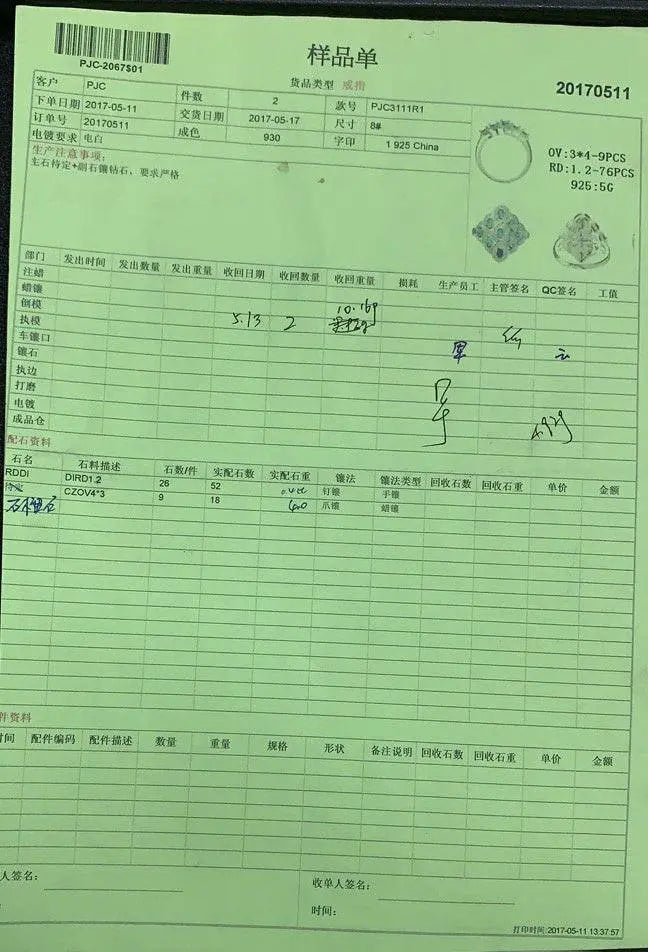 PJC-2067$01
样品单
货品类型 戒指
20170511
客户 PJC 件数 2 款号 PJC3111R1
下单日期 2017-05-11 交货日期 2017-05-17 尺寸 8#
订单号 20170511 成色 930 字印 1 925 China
电镀要求 电白
生产注意事项:
主石待定+副石镶钻石，要求严格
OV:3*4-9PCS
RD:1.2-76PCS
925:5G
部门 发出时间 发出数量 发出重量 收回日期 收回数量 收回重量 损耗 生产员工 主管签名 QC签名 工值
注蜡
蜡镶
倒模 10.16
执模 5.13 2
车镶口
镶石
执边
打磨
电镀
成品仓
配石资料
石名 石料描述 石数/件 实配石数 实配石重 镶法 镶法类型 回收石数 回收石重 单价 金额
RDDI DIRD1.2 26 52 钉镶 手镶
待定 CZOV4*3 9 18 爪镶 蜡镶
件资料
时间 配件编码 配件描述 数量 重量 规格 形状 备注说明 回收石数 回收石重 单价 金额
人签名: 收单人签名:
时间:
打印时间:2017-05-11 13:37:57